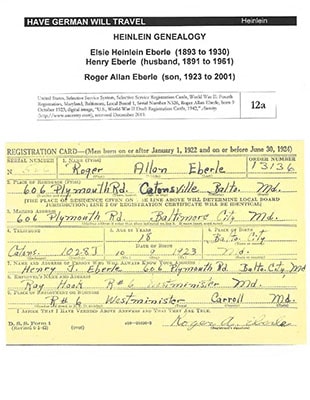 HAVE GERMAN WILL TRAVEL Heinlein
HEINLEIN GENEALOGY
Elsie Heinlein Eberle (1893 to 1930)
Henry Eberle (husband, 1891 to 1961)
Roger Allan Eberle (son, 1923 to 2001)
United States, Selective Service System, Selective Service Registration Cards, World War II: Fourth
Registration, Maryland, Baltimore, Local Board 1, Serial Number N326, Roger Allan Eberle, born
October 1923; digital image, "U.S. World War II Draft Registration Cards, 1942," Ancestry
(http://www.ancestry.com), retrieved December 2013.
12a
REGISTRATION CARD—(Men born on or after January 1, 1922 and on or before June 30, 1924)
SERIAL NUMBER 1. NAME (Print) ORDER NUMBER
Roger Allan Eberle 13136
2. PLACE OF RESIDENCE (Print)
606 Plymouth Rd. Catonsville Balto. Md.
[THE PLACE OF RESIDENCE GIVEN ON LINE ABOVE WILL DETERMINE LOCAL BOARD
JURISDICTION; LINE 2 OF REGISTRATION CERTIFICATE WILL BE IDENTICAL]
3. MAILING ADDRESS
606 Plymouth Rd. Baltimore City Md.
4. TELEPHONE 5. AGE IN YEARS 6. PLACE OF BIRTH
18 Balto. City
DATE OF BIRTH
Catons. 1028J 10 9 1923 Md.
7. NAME AND ADDRESS OF PERSON WHO WILL ALWAYS KNOW YOUR ADDRESS
Henry J. Eberle 606 Plymouth Rd. Balto. City Md
8. EMPLOYER'S NAME AND ADDRESS
Ray Hook R#6 Westminister Md.
9. PLACE OF EMPLOYMENT OR BUSINESS
R#6 Westminister Carroll Md.
I AFFIRM THAT I HAVE VERIFIED ABOVE ANSWERS AND THAT THEY ARE TRUE.
D. S. S. Form 1
Roger A. Eberle